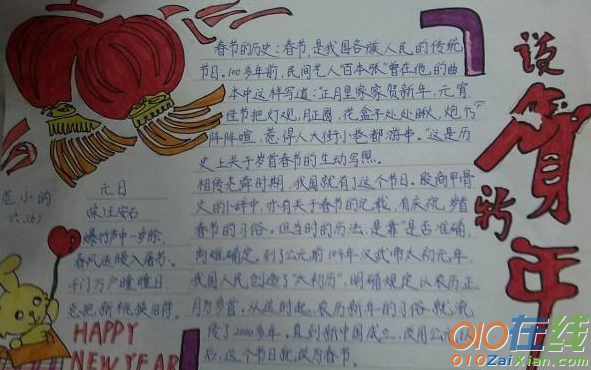 春节的历史：春节，是我国各族人民的传统
节日。100多年前，民间艺人"百本张"曾在他的曲
本中这样写道："正月里家家贺新年，元宵
佳节把灯观，月正圆，花盒子处处瞅，炮竹
阵阵喧，惹得人大街小巷都游串。"这是历
史上关于岁首春节的生动写照。
相传尧舜时期，我国就有了这个节日。殷商甲骨
文的小碎中，亦有关于春节的记载，有庆祝岁首
春节的习俗。但当时的历法，是靠"是否准确，
尚难确定。到了公元前104年汉武帝太初元年，
我国人民创造了"太初历"，明确规定以农历正
月为岁首。从这时起，农历新年的习俗就流
传了2000多年。直到新中国成立，改用公元
后，这个节日就改为春节。
说贺新年
范小
六.(6)
元日
宋王安石
爆竹声中一岁除，
春风送暖入屠苏。
千门万户曈曈日，
总把新桃换旧符。
HAPPY
NEW YEAR
010在线
010ZaiXian.com